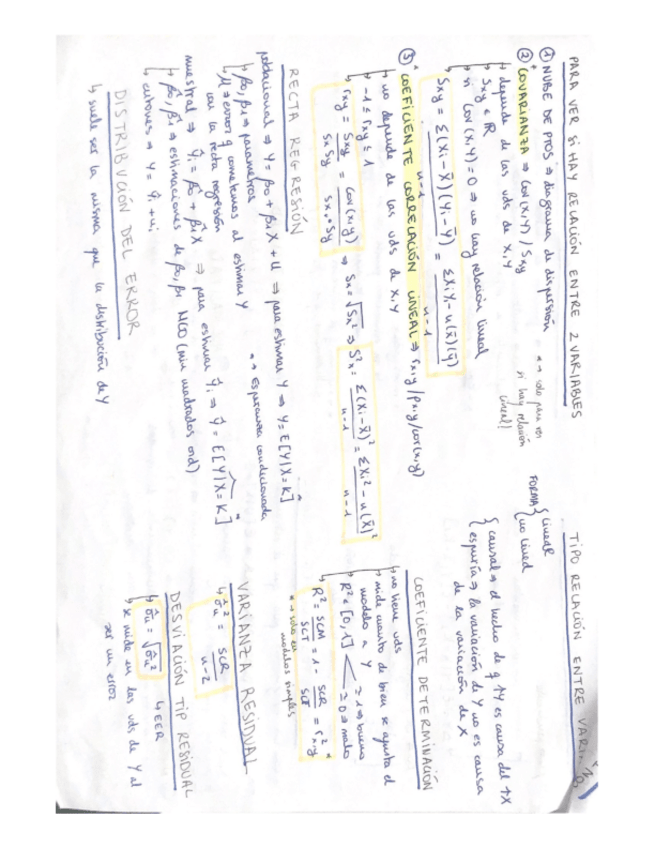 PARA VER SI HAY RELACIÓN ENTRE 2 VARIABLES
① NUBE DE PTOS ⇒ diagrama de dispersión
② COVARIANZA ⇒ Cov(x,y) / Sxy
* → solo para ver
si hay relación
lineal!
↳ depende de las uds de x,y
↳ Sxy ∈ ℝ
↳ si Cov(x,y)=0 ⇒ no hay relación lineal
Sxy = Σ(Xi − X̄)(Yi − Ȳ) / n−1 = ΣXiYi − n(x̄)(ȳ) / n−1
③ COEFICIENTE CORRELACIÓN LINEAL ⇒ rx,y / ρx,y / cor(x,y)
↳ no depende de las uds de x,y
↳ −1 ≤ rxy ≤ 1
↳ rxy = Sxy / Sx Sy = Cov(x,y) / Sx · Sy ⇒ Sx = √Sx² ⇒ S²x = Σ(Xi − x̄)² / n−1 = ΣXi² − n(x̄)² / n−1
RECTA REGRESIÓN
poblacional ⇒ Y = β0 + β1X + u ⇒ para estimar Y ⇒ Y = E[Y|X=K]
↳ β0, β1 ⇒ parámetros
* → esperanza condicionada
↳ μ ⇒ error q cometemos al estimar Y
con la recta regresión
muestral ⇒ Ŷi = β̂0 + β̂1X ⇒ para estimar Ŷi ⇒ Ŷ = E[Y|X=K]
↳ β̂0, β̂1 ⇒ estimaciones de β0, β1 MCO (min cuadrados ord)
↳ entonces ⇒ Y = Ŷi + ui
DISTRIBUCIÓN DEL ERROR
↳ suele ser la misma que la distribución de Y
TIPO RELACIÓN ENTRE
FORMA { lineal
no lineal
{ causal ⇒ el hecho de q ↑Y es causa del ↑X
espuria ⇒ la variación de Y no es causa
de la variación de X
COEFICIENTE DETERMINACIÓN
↳ no tiene uds
↳ mide cuanto de bien se ajusta el
modelo a Y
↳ R² ∈ [0,1] < ≥ 1 ⇒ bueno
≥ 0 ⇒ malo
↳ R² = SCM / SCT = 1 − SCR / SCT = r²x,y *
* → solo en
modelos simples
VARIANZA RESIDUAL
↳ σ̂u² = SCR / n−2
DESVIACIÓN TIP RESIDUAL
↳ σ̂u = √σ̂u²
↳ EER
↳ se mide en las uds de Y al
ser un error